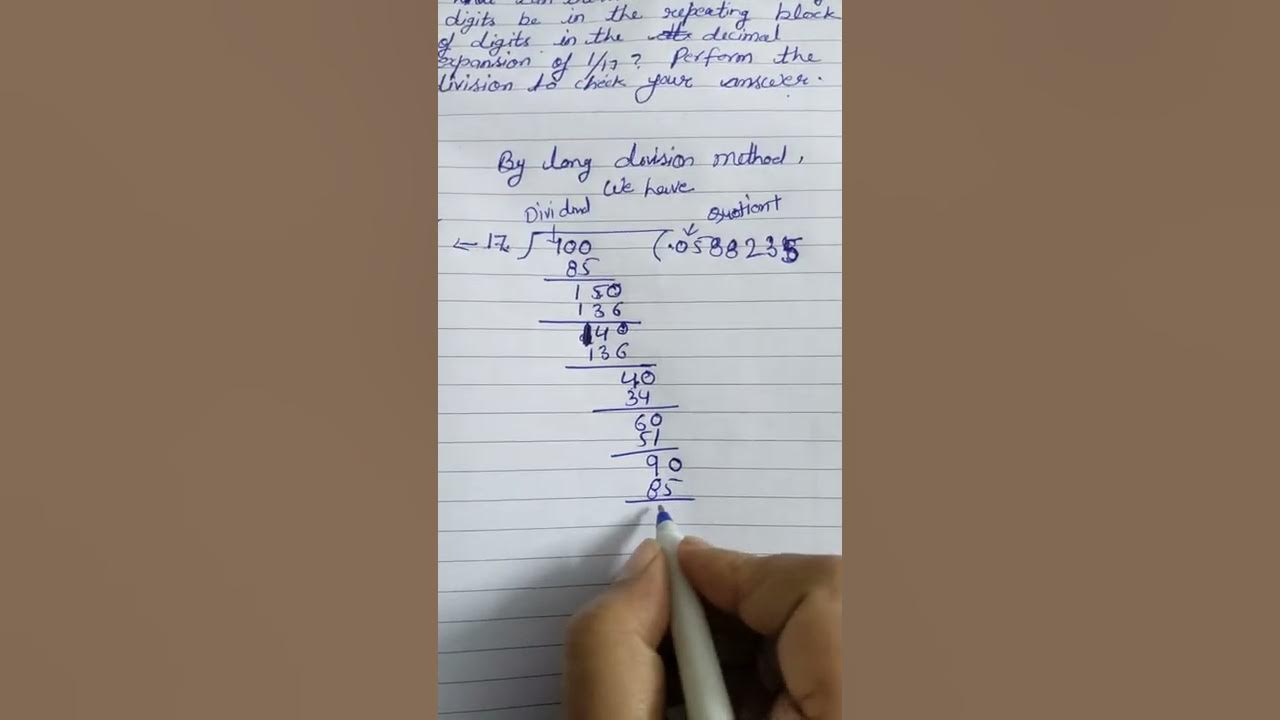 digits be in the repeating block
of digits in the decimal
expansion of 1/17 ? Perform the
division to check your answer.
By long division method,
We have
Dividend
Quotient
← 17 ) 100 ( .0588235
85
150
136
140
136
40
34
60
51
90
85